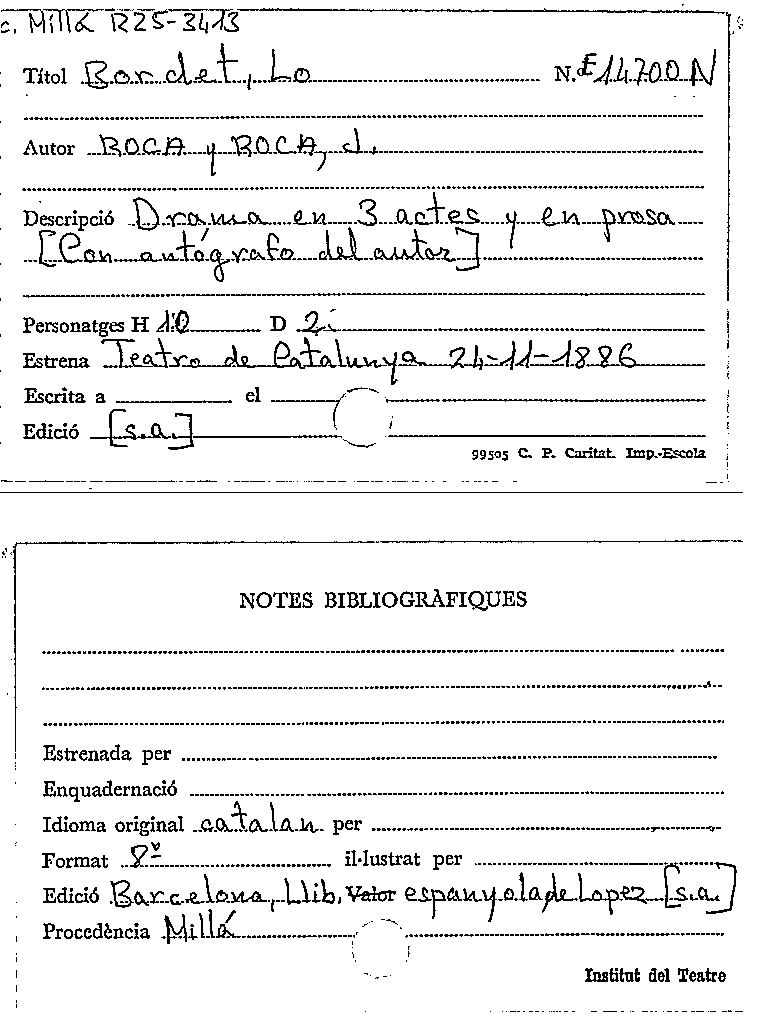 c. Millá R25-3413
Títol Bordet, Lo N. E14700N
Autor ROCA y ROCA, J.
Descripció Drama en 3 actes y en prosa
[Con autógrafo del autor]
Personatges H 10 D 2
Estrena Teatro de Catalunya 24-11-1886
Escrita a el
Edició [s.a.]
99505 C. P. Caritat. Imp.-Escola
NOTES BIBLIOGRÀFIQUES
Estrenada per
Enquadernació
Idioma original catalan per
Format 8º il·lustrat per
Edició Barcelona, Llib. Valor espanyola de Lopez [s.a.]
Procedència Millá
Institut del Teatre